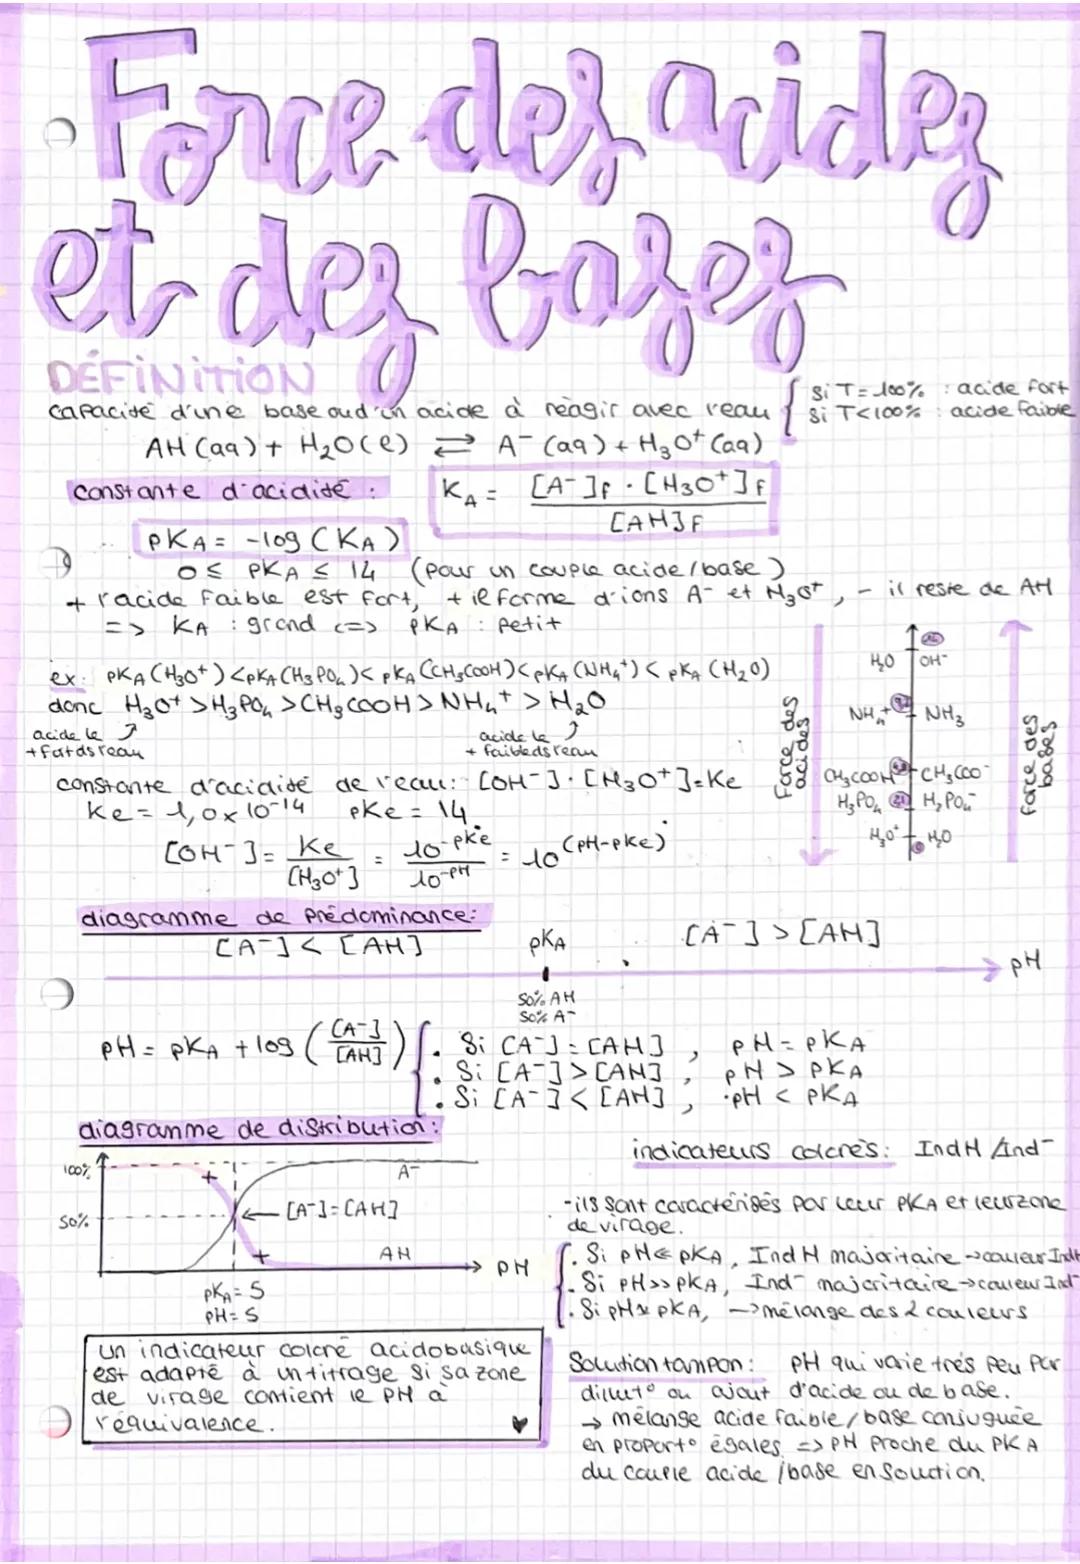 Force des acides
et des bases
DÉFINITION
capacité d'une base oud'un acide à réagir avec l'eau
Si T=100% : acide fort
Si T<100% : acide faible
AH(aq) + H₂O(l) ⇌ A⁻(aq) + H₃O⁺(aq)
constante d'acidité :
K_A = [A⁻]f · [H₃O⁺]f / [AH]f
pKA = -log (KA)
0 ≤ pKA ≤ 14 (pour un couple acide/base)
+ l'acide faible est fort, + il forme d'ions A⁻ et H₃O⁺, - il reste de AH
=> KA : grand <=> pKA : petit
ex: pKA (H₃O⁺) < pKA (H₃PO₄) < pKA (CH₃COOH) < pKA (NH₄⁺) < pKA (H₂O)
donc H₃O⁺ > H₃PO₄ > CH₃COOH > NH₄⁺ > H₂O
acide le
+ fort ds l'eau
acide le
+ faible ds l'eau
Force des
acides
H₂O OH⁻
NH₄⁺ NH₃
CH₃COOH CH₃COO⁻
H₃PO₄ 2,1 H₂PO₄⁻
H₃O⁺ 0 H₂O
force des
bases
constante d'acidité de l'eau: [OH⁻]·[H₃O⁺]=Ke
Ke = 1,0×10⁻¹⁴ pKe = 14.
[OH⁻] = Ke / [H₃O⁺] = 10^-pKe / 10^-pH = 10^(pH-pKe)
diagramme de prédominance:
[A⁻] < [AH] pKA [A⁻] > [AH]
pH
50% AH
50% A⁻
pH = pKA + log ([A⁻]/[AH])
. Si [A⁻] = [AH] , pH = pKA
. Si [A⁻] > [AH] , pH > pKA
. Si [A⁻] < [AH] , pH < pKA
diagramme de distribution :
100%
A⁻
50%
[A⁻]=[AH]
AH
pH
pKA = 5
pH = 5
indicateurs colorés: IndH / Ind⁻
-ils sont caractérisés par leur pKA et leur zone
de virage.
. Si pH << pKA, IndH majoritaire → couleur IndH
. Si pH >> pKA, Ind⁻ majoritaire → couleur Ind⁻
. Si pH ≈ pKA, → mélange des 2 couleurs
un indicateur coloré acidobasique
est adapté à un titrage si sa zone
de virage contient le pH à
l'équivalence.
Solution tampon : pH qui varie très peu par
dilut° ou ajout d'acide ou de base.
→ mélange acide faible/base conjuguée
en proport° égales => pH proche du pKA
du couple acide/base en solution.